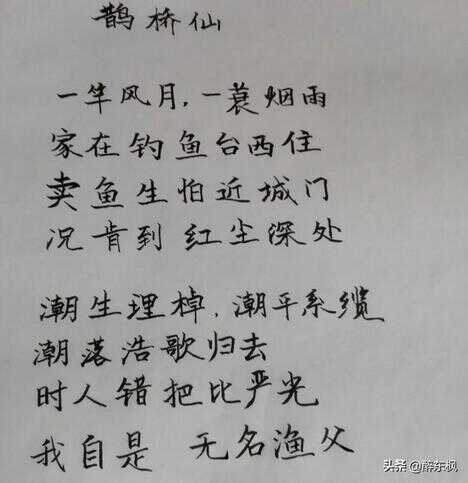 鹊桥仙
一竿风月,一蓑烟雨
家在钓鱼台西住
卖鱼生怕近城门
况肯到红尘深处
潮生理棹,潮平系缆
潮落浩歌归去
时人错把比严光
我自是 无名渔父
头条 @醉东枫